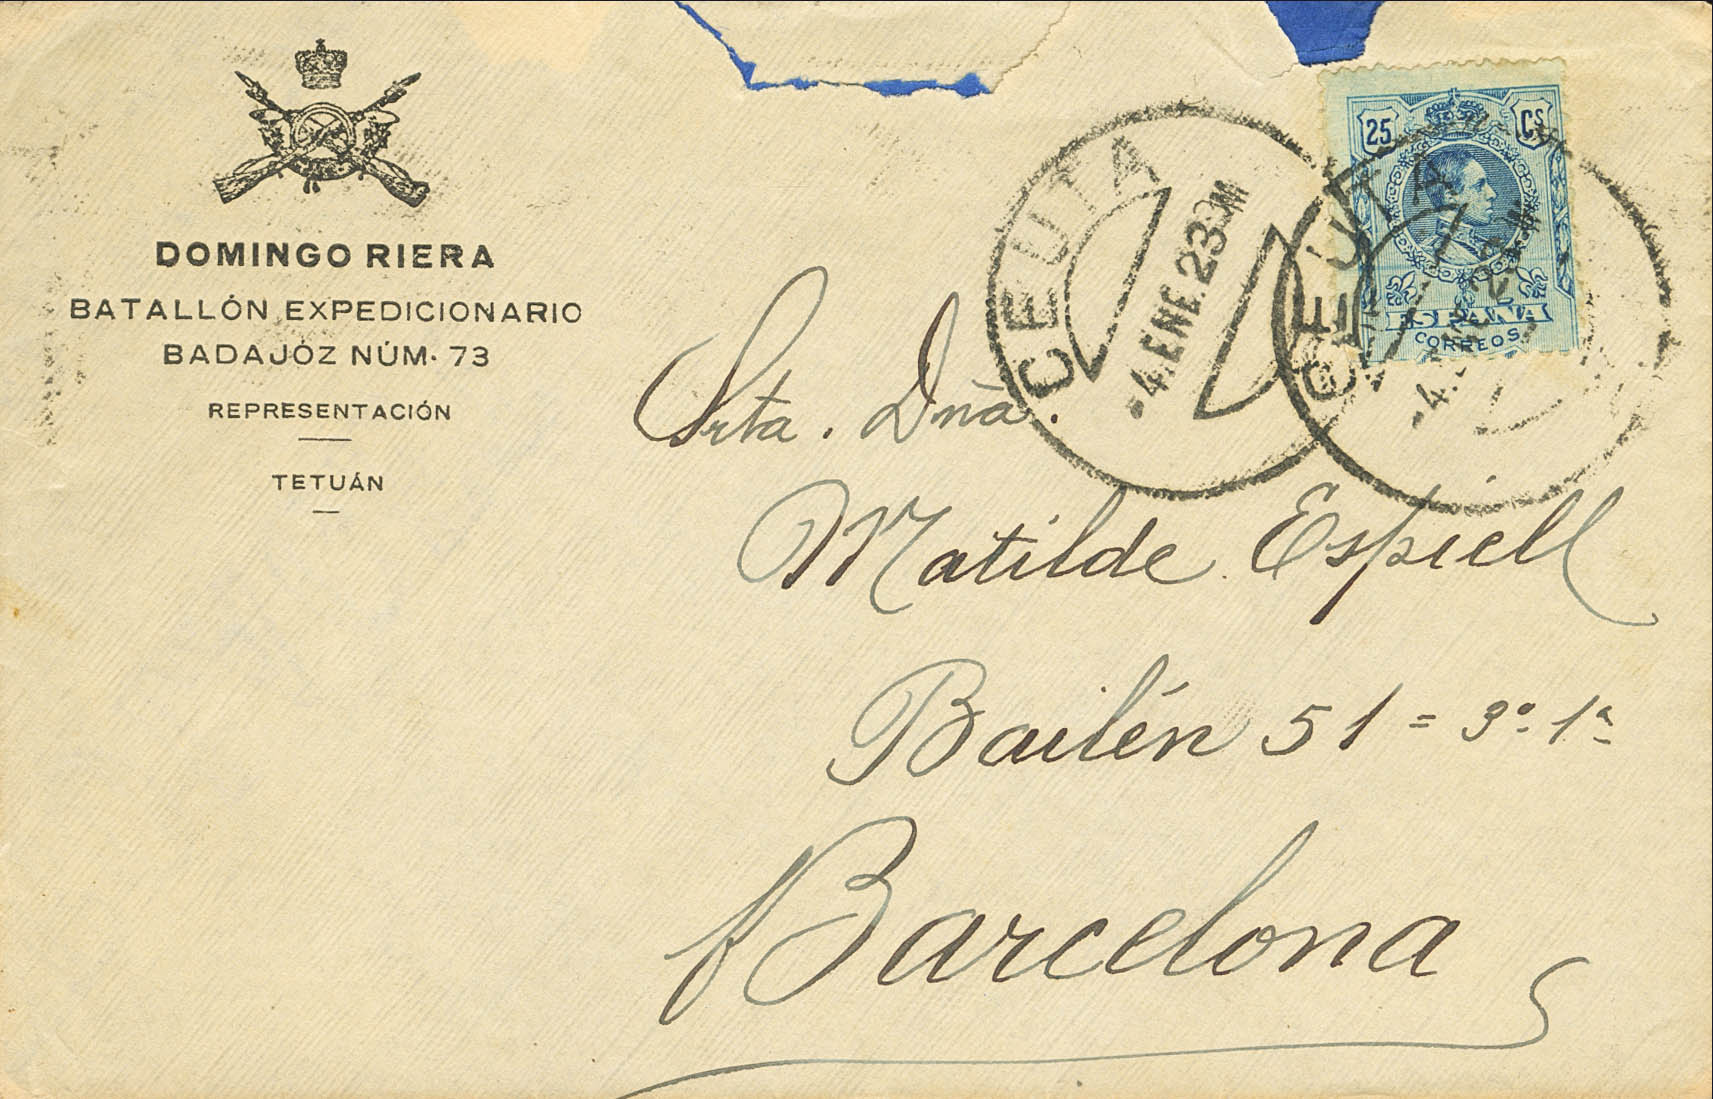 DOMINGO RIERA
BATALLÓN EXPEDICIONARIO
BADAJOZ NÚM. 73
REPRESENTACIÓN
TETUÁN
25 Cs
ESPAÑA
CORREOS
CEUTA
-4.ENE.23
CEUTA
-4. 23
Srta. Dña.
Matilde Espiell
Bailén 51 = 3º 1ª
Barcelona